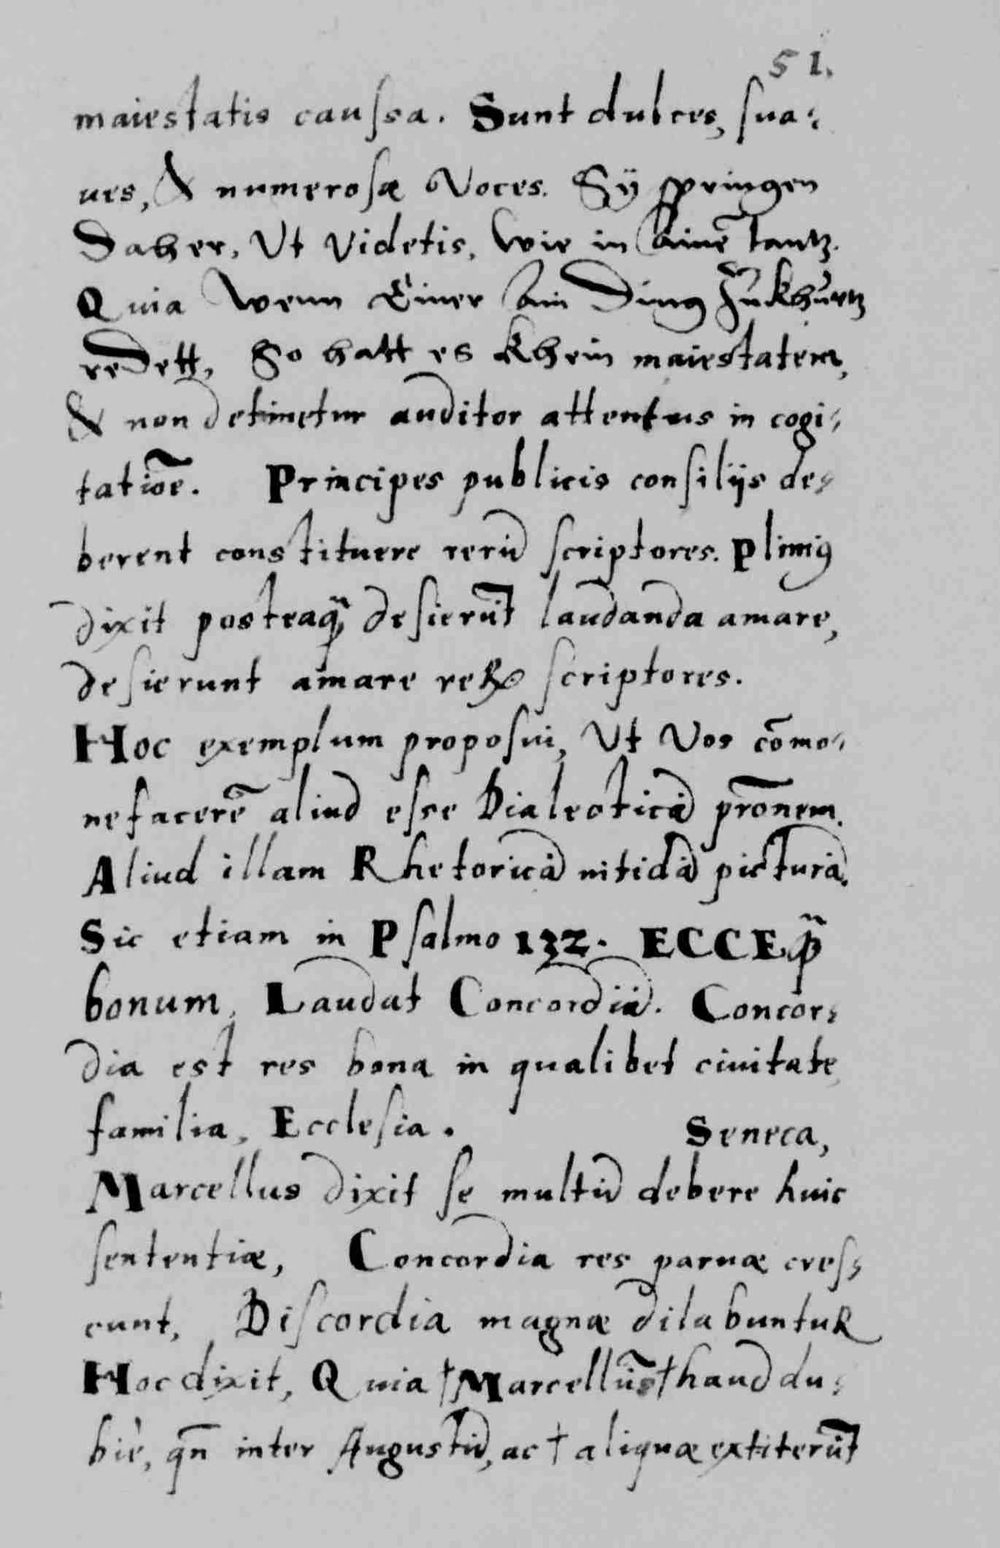 51.
maiestatis caussa. Sunt dulces, sua-
ues, & numerosæ Voces. Sÿ springen
daher, Vt Videtis, wie in ainē tantz.
Quia wenn Einer ain Ding Zu khurtz
redett, So hatt es khein maiestatem,
& non detinetur auditor attentus in cogi-
tatiōe. Principes publicis consilijs de-
berent constituere rerū scriptores. Plinius
dixit posteaq̃ desierūt laudanda amare,
desierunt amare reꝝ scriptores.
Hoc exemplum proposui, Vt Vos cōmo-
nefacerē aliud esse Dialecticā prōnem.
Aliud illam Rhetoricā nitidā picturā.
Sic etiam in Psalmo 132. ECCE q̃
bonum, Laudat Concordiā. Concor-
dia est res bona in qualibet ciuitate,
familia, Ecclesia. Seneca,
Marcellus dixit se multū debere huic
sententiæ, Concordia res paruæ cres-
cunt, Discordia magnæ dilabuntur
Hoc dixit, Quia †Marcellūs† haud du-
biè, qn̄ inter Augustū, ac † aliquæ extiterūt